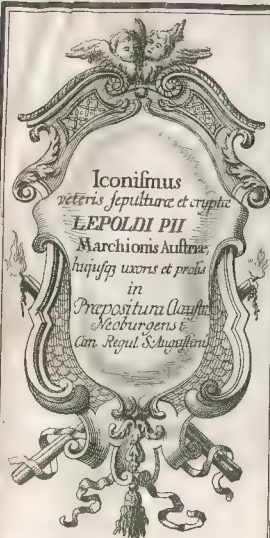 Iconiſmus
veteris ſepulturæ et cryptæ
LEPOLDI PII
Marchionis Austriæ,
hujusq uxoris et prolis
in
Præpositura Claustro
Neoburgensi
Can. Regul. S. Augustini